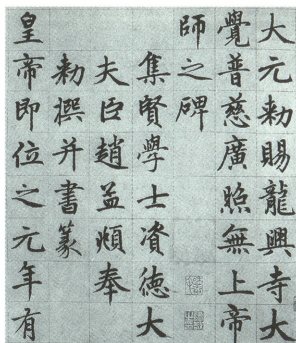 大元勑賜龍興寺大
覺普慈廣照無上帝
師之碑
集賢學士資德大
夫臣趙孟頫奉
勑撰并書篆
皇帝即位之元年有